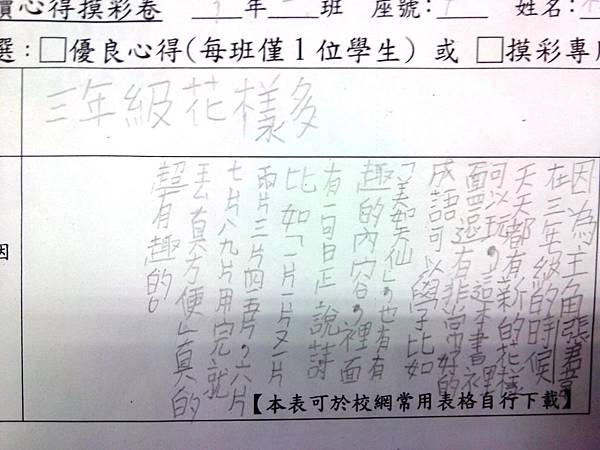 心得摸彩卷 年 班 座號: 姓名:
選:□優良心得(每班僅1位學生) 或 □摸彩專
三年級花樣多
因為主角張書
在三年級的時候
天天都有新的花樣
可以玩,這本書裡
面還有非常好的
成語可以學比如
「美如天仙」,也有有
趣的內容,裡面
有一句是說詩
比如「一片一片又一片
兩片三片四五片,六片
七片八九片用完就
丟真方便」真的
有趣的。
因
【本表可於校網常用表格自行下載】